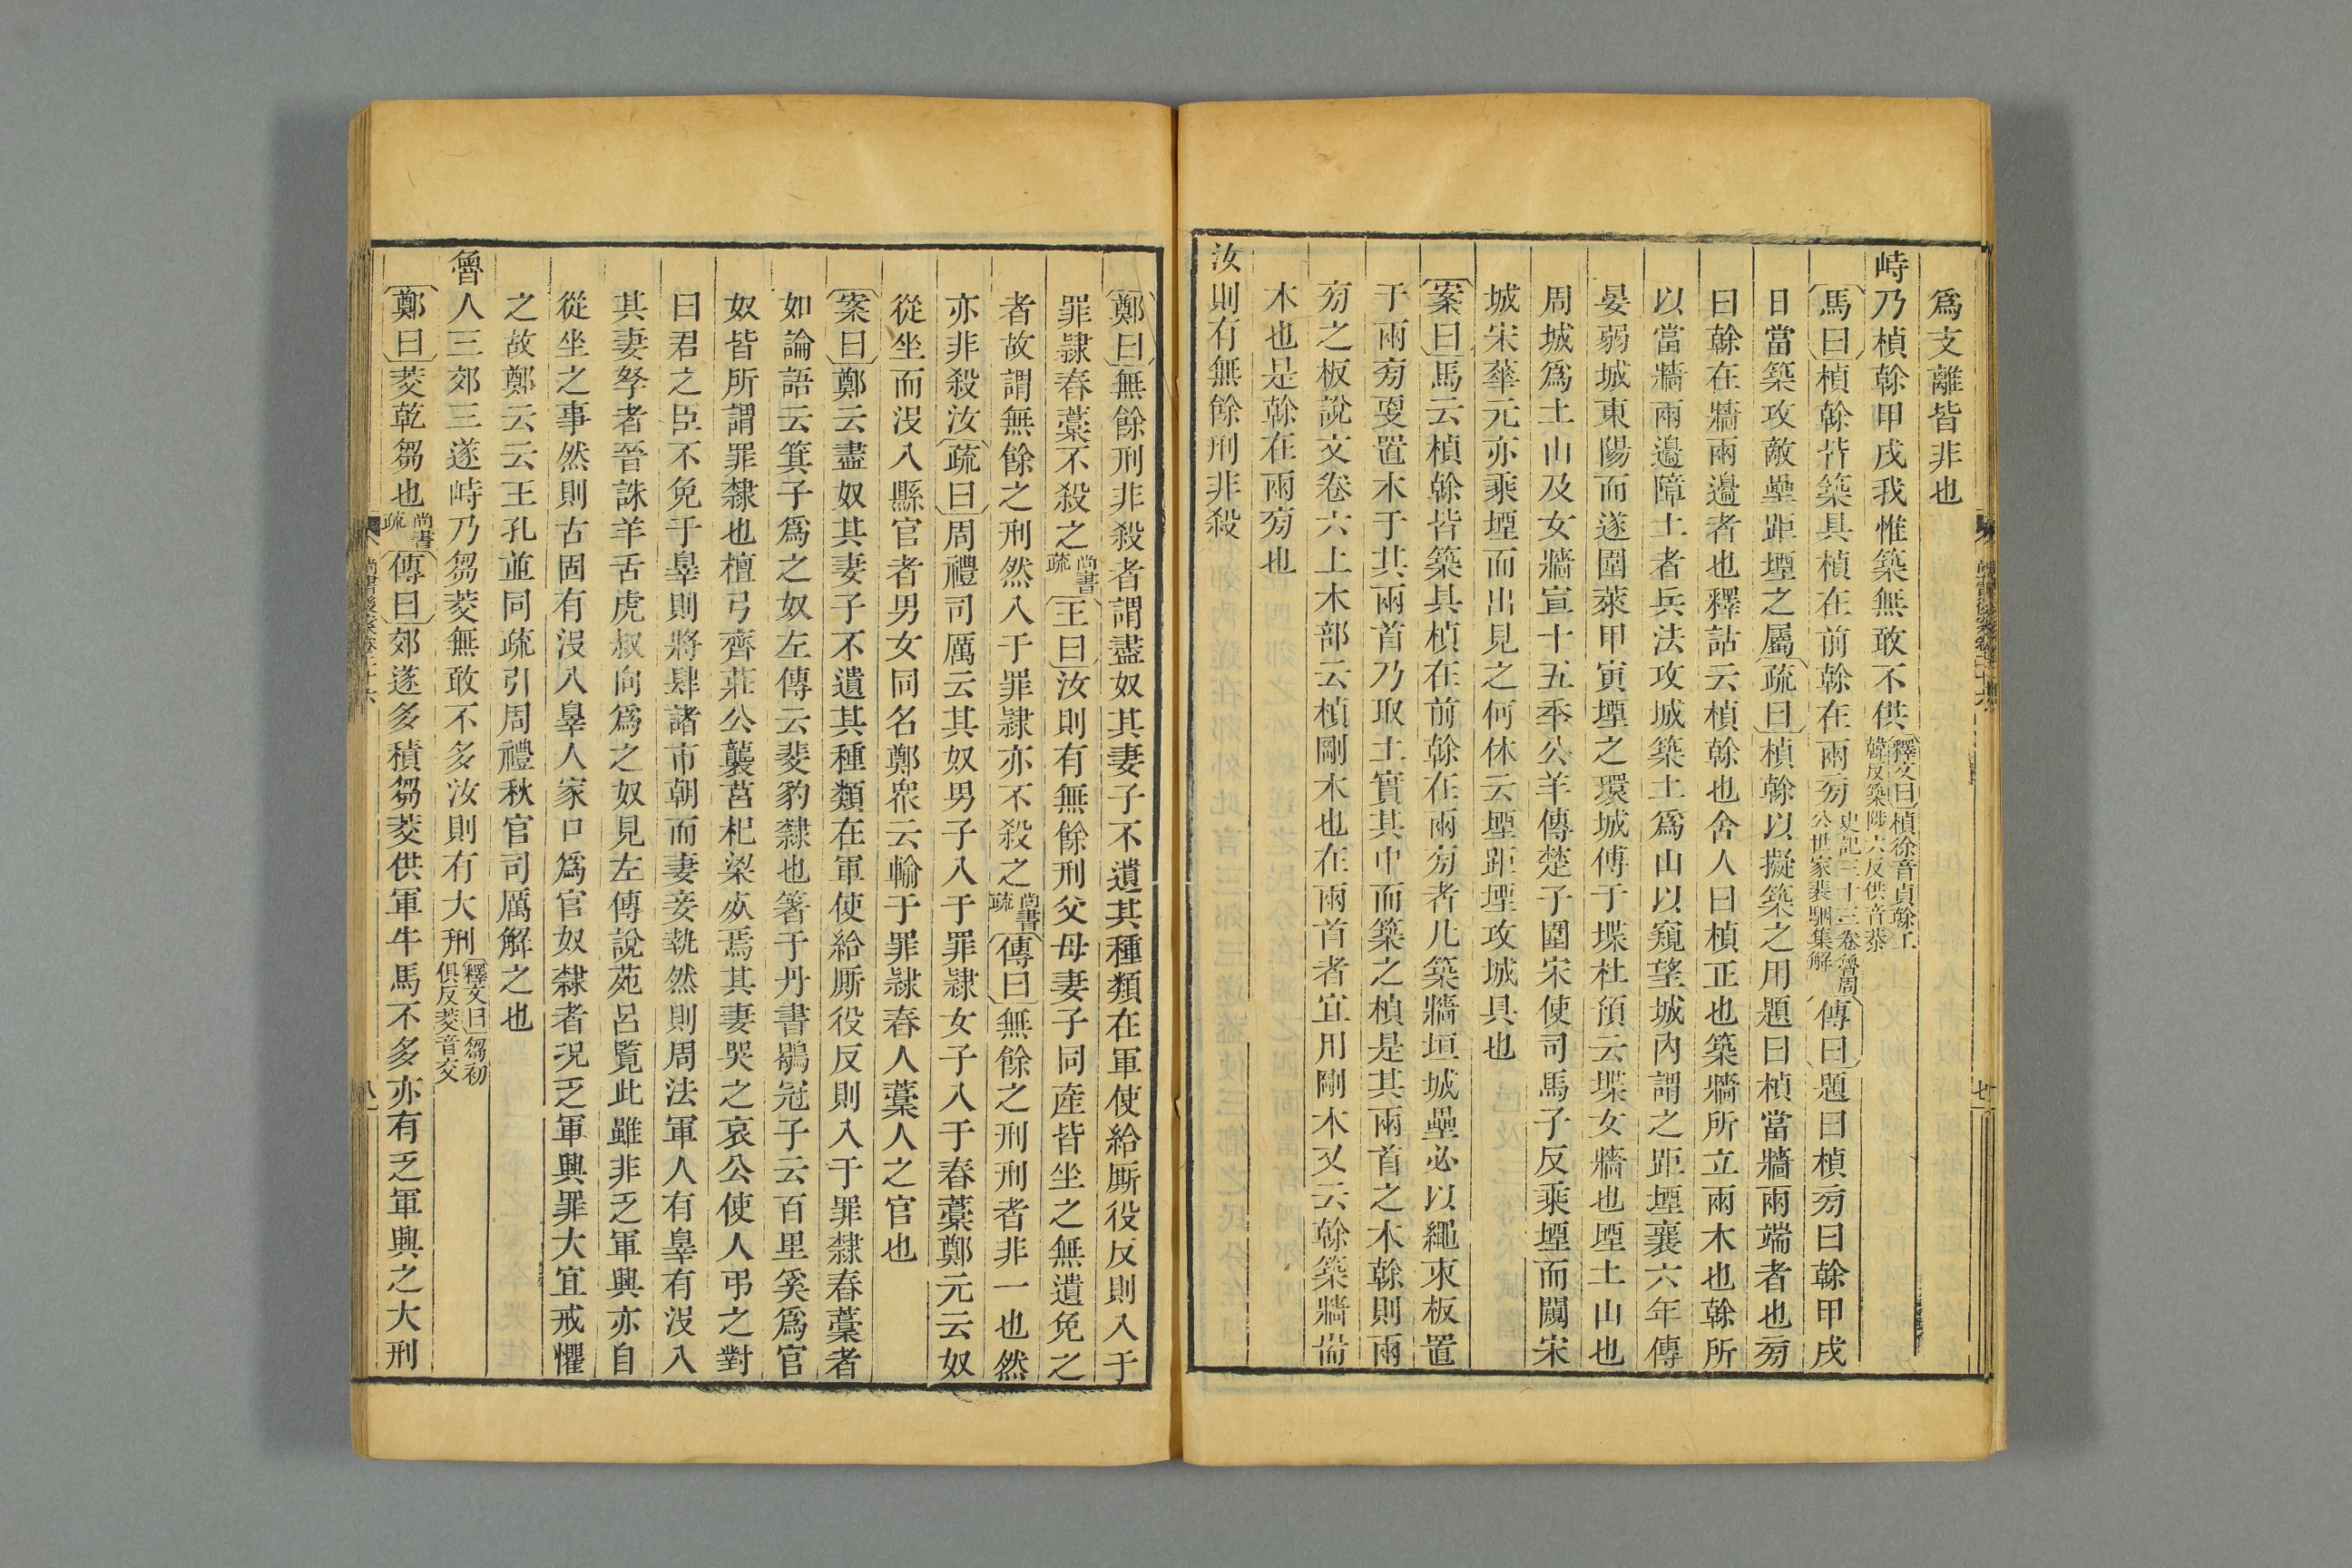 爲文離皆非也
峙乃楨榦甲戌我惟築無敢不供釋文曰楨徐音貞榦工
翰反築陟六反供音恭
馬曰楨榦皆築具楨在前榦在兩㫄史記三十三卷魯周
公世家裴駰集解傳曰題曰楨㫄曰榦甲戌
日當築攻敵壘距堙之屬疏曰楨榦以擬築之用題曰楨當牆兩端者也㫄
曰榦在牆兩邉者也釋詁云楨榦也舍人曰楨正也築牆所立兩木也榦所
以當牆兩邉障土者兵法攻城築土爲山以窺望城內謂之距堙襄六年傳
晏弱城東陽而遂圍萊甲寅堙之環城傅于堞杜預云堞女牆也堙土山也
周城爲土山及女牆宣十五年公羊傳楚子圍宋使司馬子反乘堙而闚宋
城宋華元亦乘堙而出見之何休云堙距堙攻城具也
案曰馬云楨榦皆築具楨在前榦在兩㫄者凡築牆垣城壘必以繩束板置
于兩㫄夏置木于其兩首乃取土實其中而築之楨是其兩首之木榦則兩
㫄之板說文卷六上木部云楨剛木也在兩首者宜用剛木又云榦築牆耑
木也是榦在兩㫄也
汝則有無餘刑非殺
鄭曰無餘刑非殺者謂盡奴其妻子不遺其種類在軍使給厮役反則入于
罪隷舂藁不殺之尚書
疏王曰汝則有無餘刑父母妻子同產皆坐之無遺免之
者故謂無餘之刑然入于罪隷亦不殺之尚書
疏傳曰無餘之刑刑者非一也然
亦非殺汝疏曰周禮司厲云其奴男子入于罪隷女子入于舂藁鄭元云奴
從坐而沒入縣官者男女同名鄭衆云輸于罪隷舂人藁人之官也
案曰鄭云盡奴其妻子不遺其種類在軍使給厮役反則入于罪隸舂藁者
如論語云箕子爲之奴左傳云斐豹隸也箸于丹書鶡冠子云百里奚爲官
奴皆所謂罪隸也檀弓齊莊公襲莒杞梁死焉其妻哭之哀公使人弔之對
曰君之臣不免于辠則將肆諸市朝而妻妾執然則周法軍人有辠有沒入
其妻孥者晉誅羊舌虎叔向爲之奴見左傳說苑呂覽此雖非乏軍興亦自
從坐之事然則古固有沒入辠人家口爲官奴隸者況乏軍興罪大宜戒懼
之故鄭云云王孔並同疏引周禮秋官司厲解之也
魯人三郊三遂峙乃芻茭無敢不多汝則有大刑釋文曰芻初
俱反茭音交
鄭曰茭乾芻也尚書
疏傳曰郊遂多積芻茭供軍牛馬不多亦有乏軍興之大刑